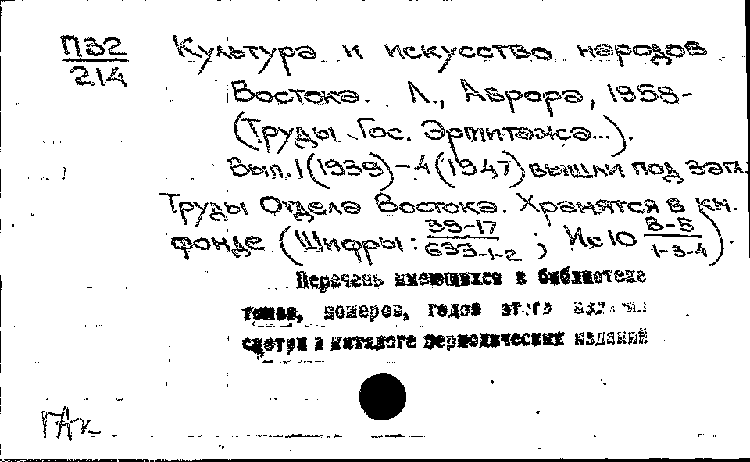 П32
214
Культура и искусство народов
Востока. Л., Аврора, 1958-
(Труды Гос. Эрмитажа...).
Вып. 1 (1939) - 4 (1947) вышли под загл.
Труды Отдела Востока. Хранятся в кн.
фонде (Шифры: 39-17/633-1-2; Ис10 В-5/1-3-4).
Перечень имеющихся в библиотеке
томов, номеров, годов этого издания
смотри в каталоге периодических изданий
ГАк